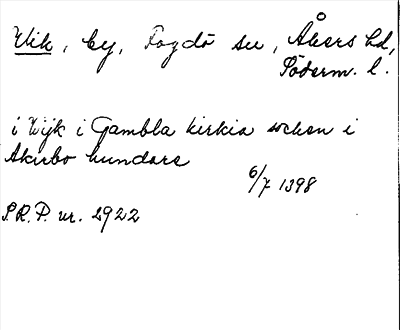 Vik, by, Fogdö sn, Åkers hd,
Söderm. l.
i Wijk i Gambla kirkia soken i
Akirbo hundare
6/7 1398
S.R.P. nr. 2922